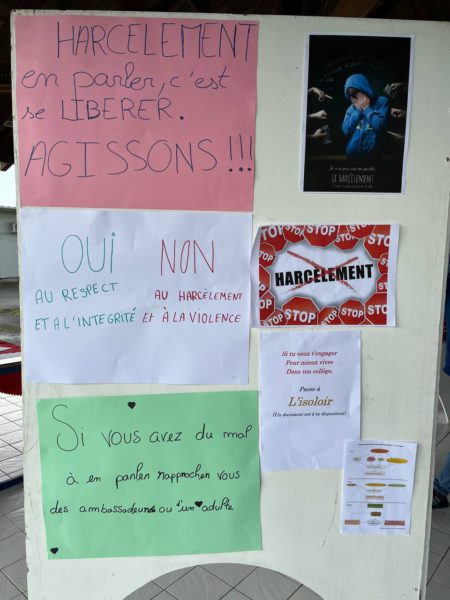 HARCÈLEMENT
en parler, c'est
se LIBERER.
AGISSONS !!!
LE HARCÈLEMENT
OUI
AU RESPECT
ET A L'INTEGRITÉ
NON
AU HARCÈLEMENT
ET À LA VIOLENCE
STOP
HARCELEMENT
STOP STOP STOP
Si tu veux t'engager
Pour mieux vivre
Dans ton collège,
Passe à
L'isoloir
(Un document est à ta disposition)
Si vous avez du mal
à en parler rapprocher vous
des ambassadeurs ou d'un adulte